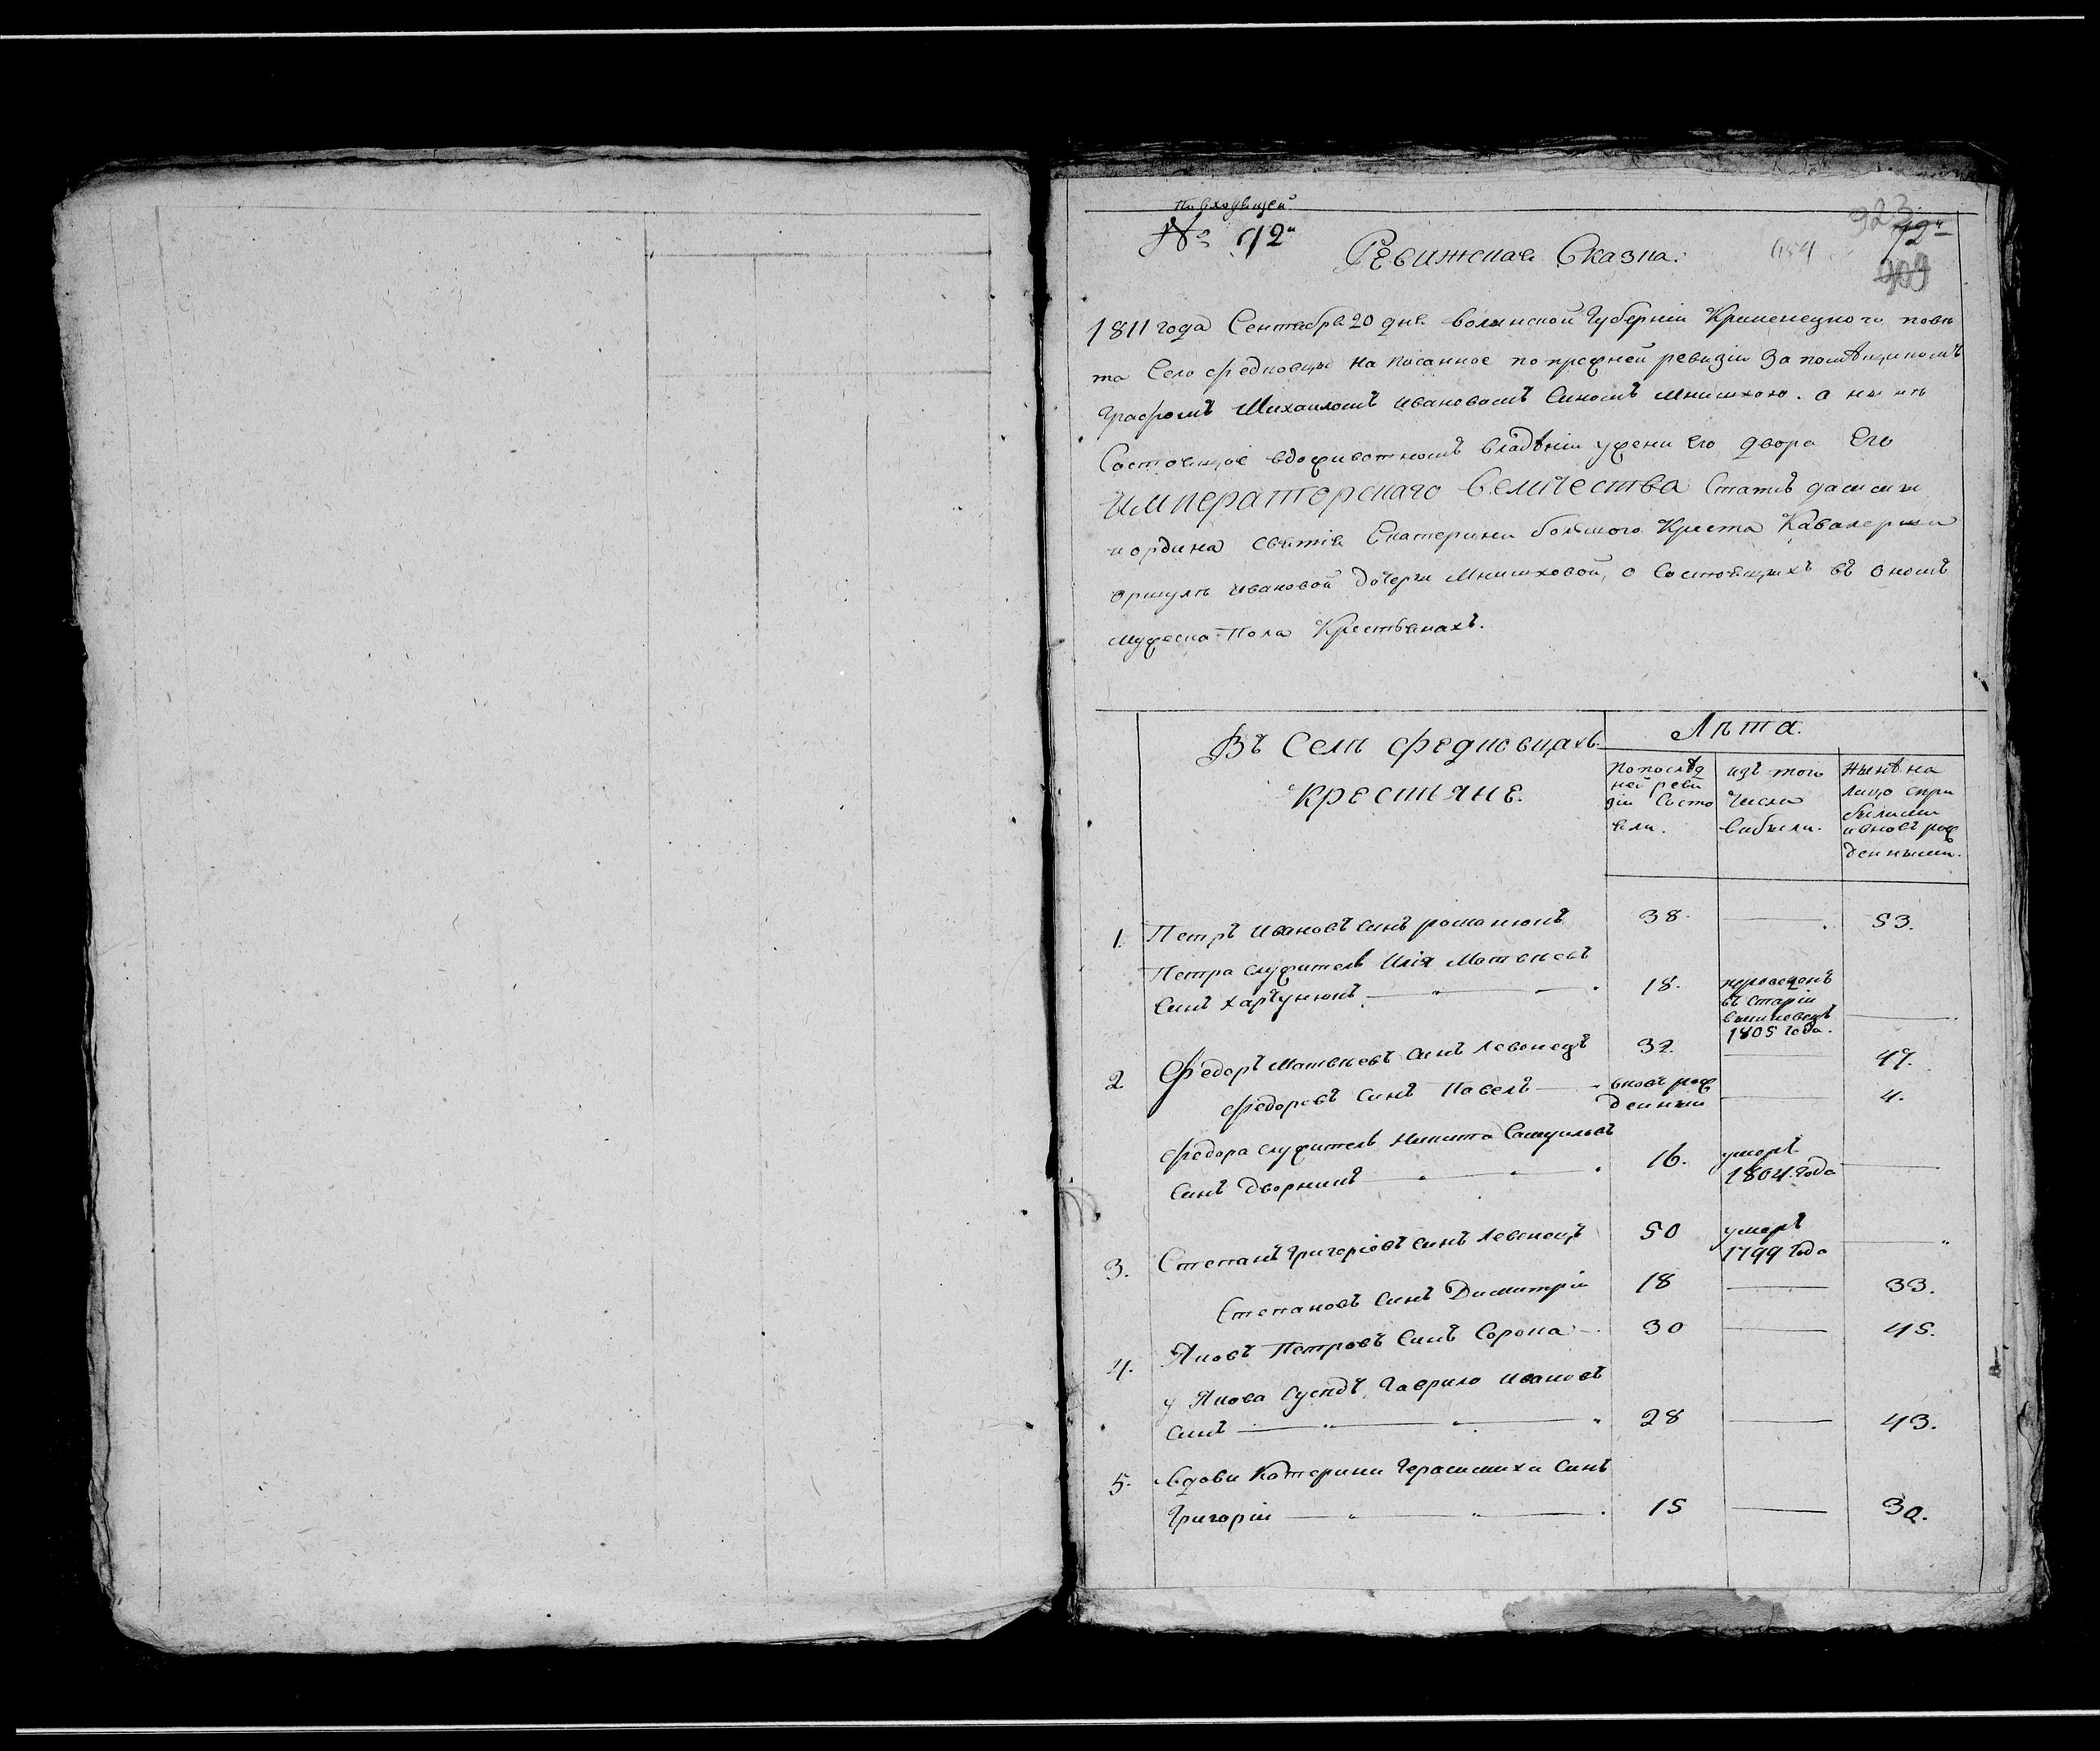 по входящей
№ 92й
Ревижская Сказка.
454
923
909
1811 года Сентября 20 дня волинской Губернiи Кременецкого повѣ
та Село федковцы написанное по прежней ревизiи за помѣщикомъ
Графомъ Михаиломъ Ивановомъ Синомъ Мнишкою. а нынѣ
Состоящое вдоживотномъ владѣнiи у жени Его двора Его
Императорскаго Величества Статсъ дами и
и ордина святiя Екатерини большого Креста Кавалерши
Оршули Ивановой Дочери Мнишховой, о Состоящихъ въ ономъ
мужеска Пола Крестьянахъ.
Въ Селѣ федковцахъ
Крестяне.
Лѣта.
по послѣд
ней реви
зiи Состо
яли.
изъ того
Числа
вибыли.
Нынѣ на
лицо спри
былими
и вновъ рож
денными.
1. Петръ Ивановъ Синъ романюкъ 38. — 53.
Петра служитель Илiя Матвѣевъ
Синъ Харчунюкъ — 18. переведенъ
въ Старiй
вишневецъ
1805 года. —
2 Федоръ Матвѣевъ Синъ Левенецъ 32. — 47.
Федоровъ Синъ Павелъ — вновъ рож
денний — 4.
Федора служитель Никита Самуиловъ
Синъ Дворникъ — 16. умеръ
1804. года —
3. Степанъ Григорiовъ Синъ Левенецъ 50 умеръ
1799 года —
Степановъ Синъ Димитрiй 18 — 33.
4. Яковъ Петровъ Синъ Сорока — 30 — 45.
у Якова Сусѣдъ, Гаврило Ивановъ
Синъ — 28 — 43.
5. вдови Катерини Герасимихи Синъ
Григорiй — 15 — 30.